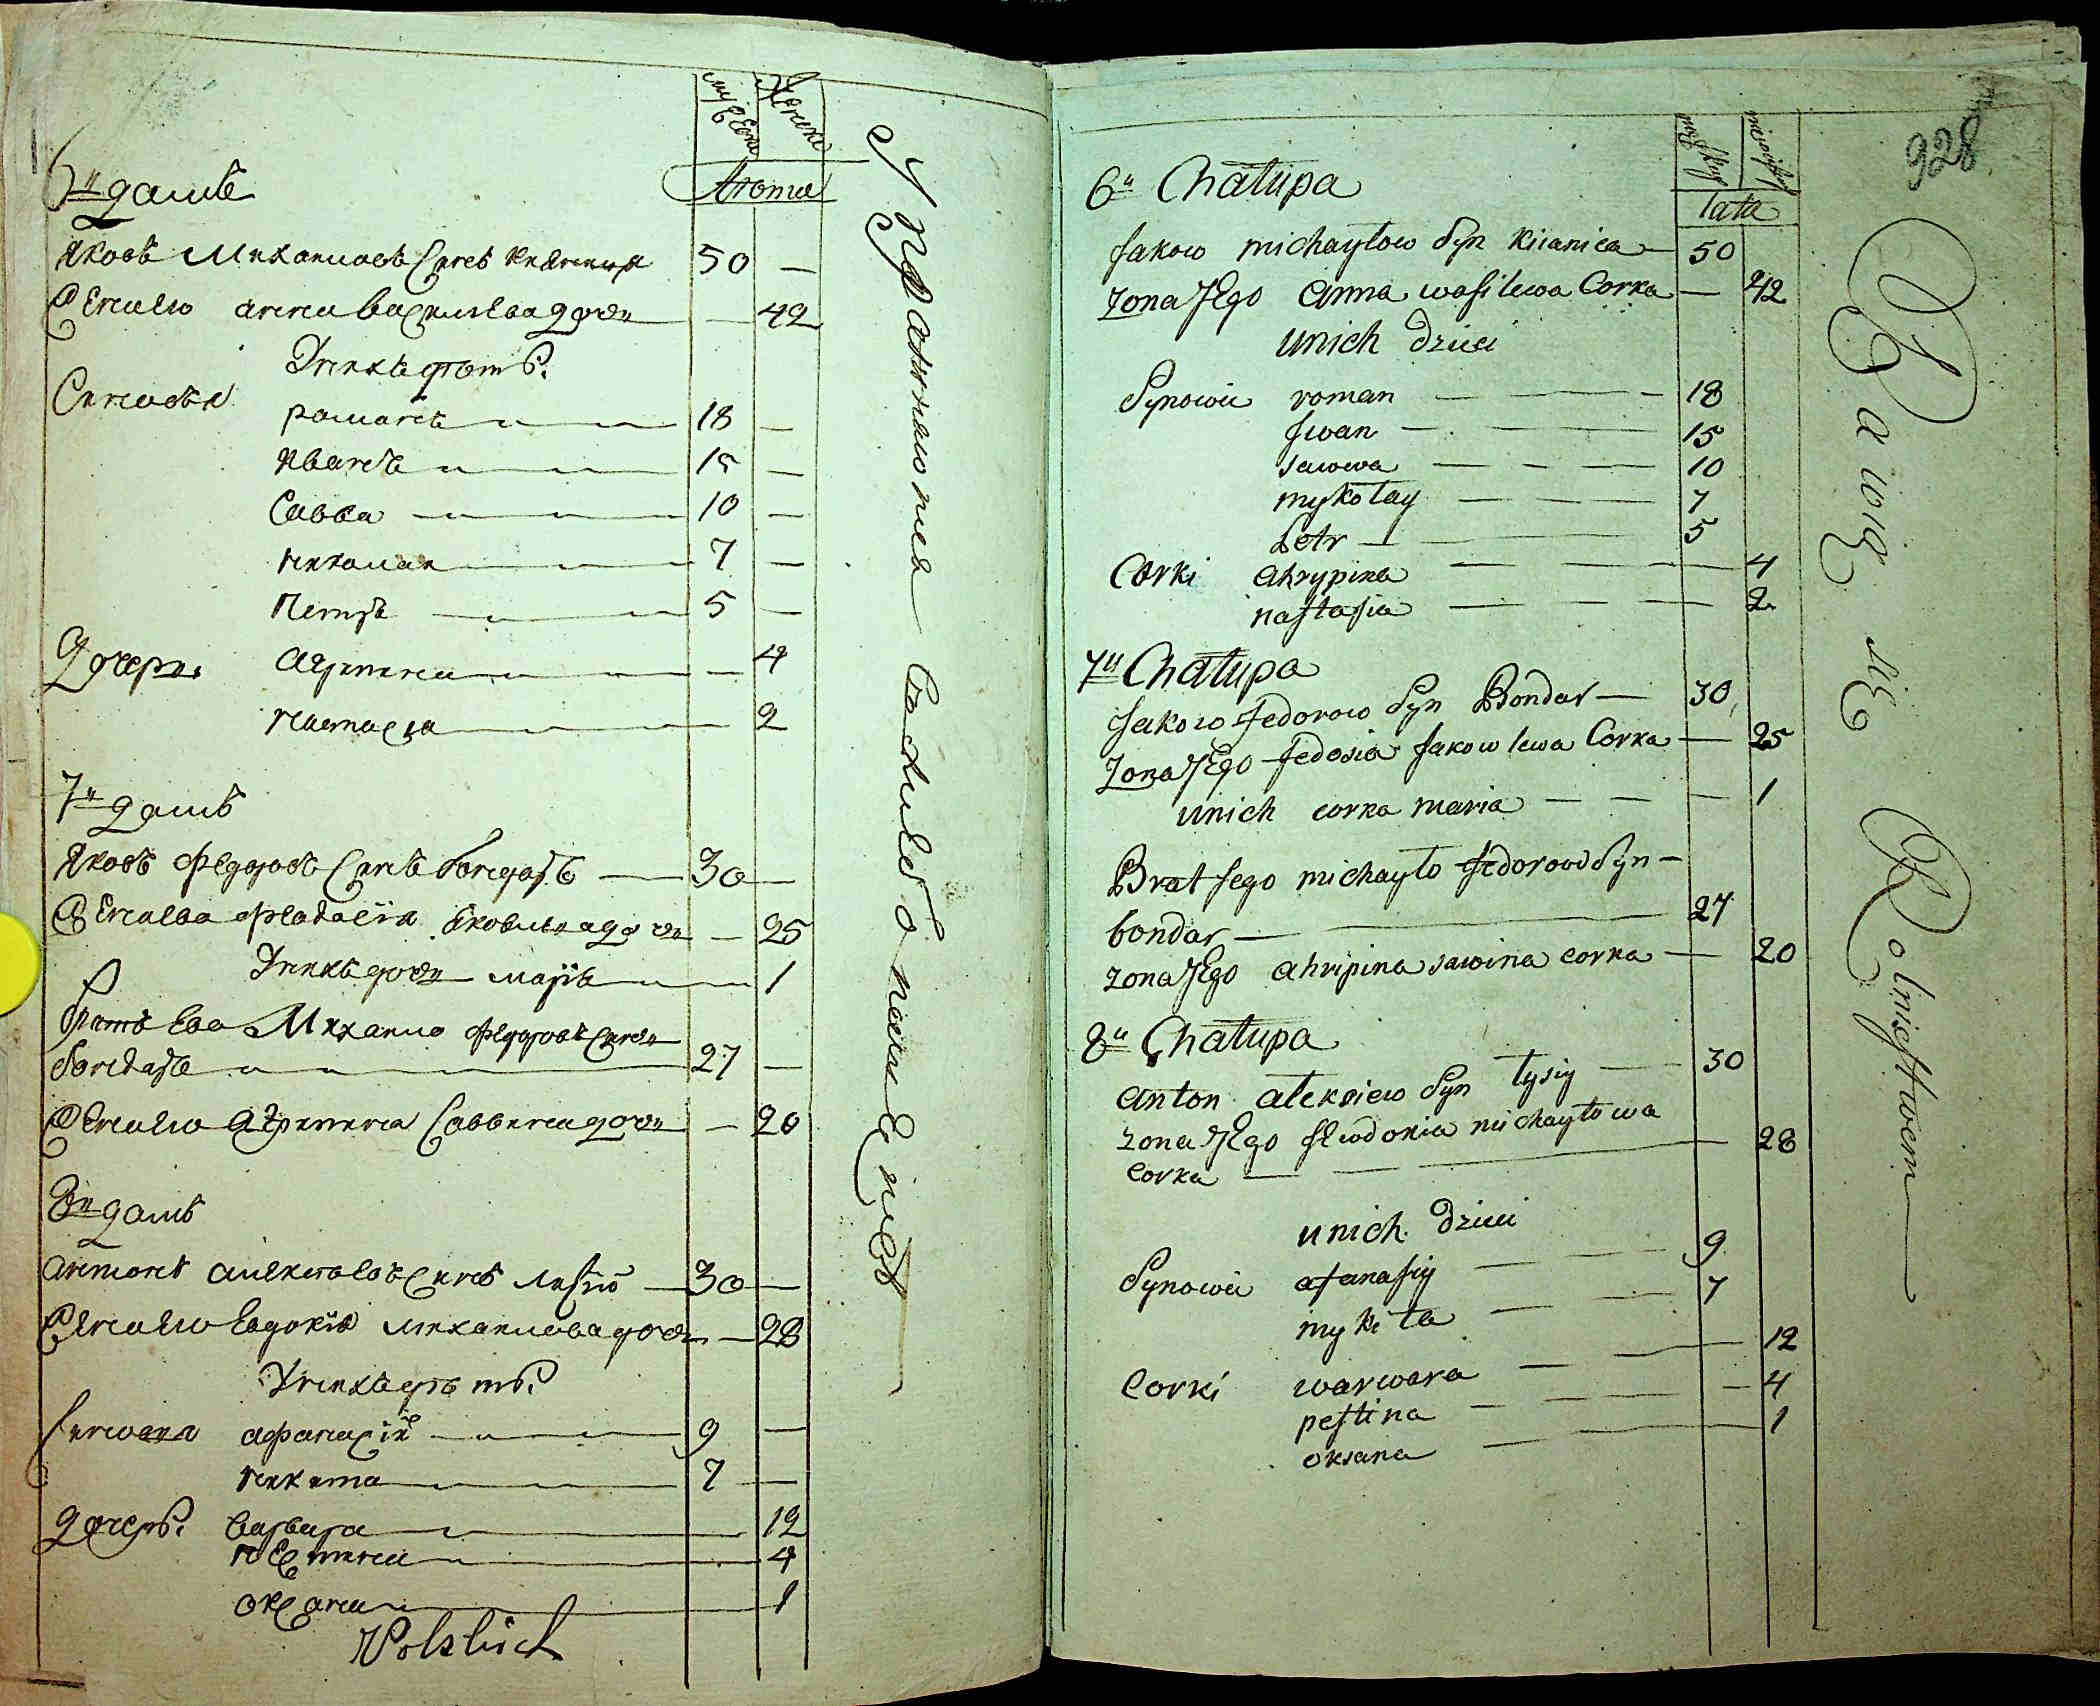 мужеска женска
лѣта
6й домъ
Яковъ Михаиловъ Сынъ Кияница 50 —
Жена ево анна Василева дочь — 42
У нихъ дѣти
Сыновья романъ 18 —
Иванъ 15 —
Савва 10 —
николаи 7 —
Петръ 5 —
дочери агрипина — 4
настасия 2
7й домъ
Яковъ Федоровъ Сынъ бондарь 30 —
Жена ево Феодосія Яковлева дочь — 25
У нихъ дочь марія 1
братъ Ево Михаило Федоровъ Сынъ
бондарь 27 —
Жена ево агрипина Саввина дочь — 20
8й домъ
антонъ алексѣевъ Сынъ лисій 30 —
Жена ево Евдокія михаилова дочь — 28
У нихъ дѣти
Сыновья афанасій 9 —
никита 7 —
дочери варвара 12
пестина 4
оксана 1
Упражняются
хлебопашествомъ
928
męskiey niewieściey
lata
6a Chałupa
Jakow michayłow Syn Kiianica — 50
zona JEgo anna wasilewa Corka — 42
unich dzieci
Synowie roman — 18
Jwan — 15
sawwa — 10
mykołay — 7
Petr — 5
Corki ahrypina — 4
nastasia — 2
7a Chałupa
Jakow Fedorow Syn Bondar — 30
zona JEgo fedosia Jakowlewa Corka — 25
unich corka maria — 1
Brat Jego michayło Fedorow Syn —
bondar — 27
zona JEgo ahripina sawina corka — 20
8a Chałupa
anton alexiew Syn łysiy — 30
zona JEgo Jewdokia michayłowa
Corka — 28
unich dzieci
Synowie afanasiy — 9
mykita — 7
Corki warwara — 12
pestina — 4
oksana — 1
Bawią się Rolnictwem